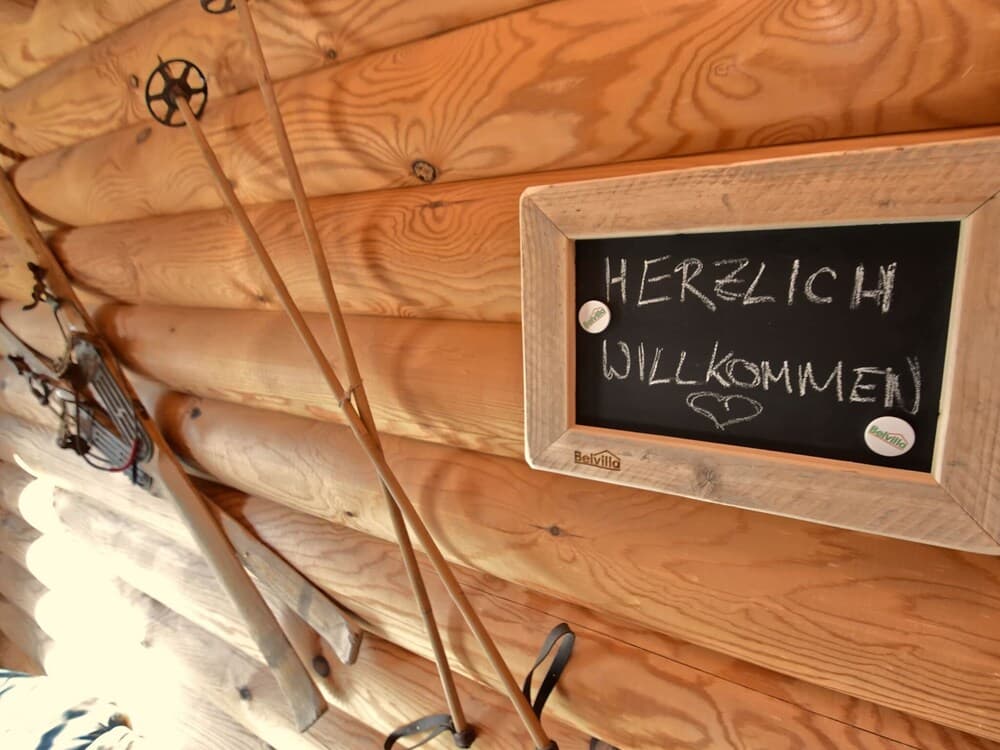 HERZLICH
Belvilla
WILLKOMMEN
Belvilla
Belvilla